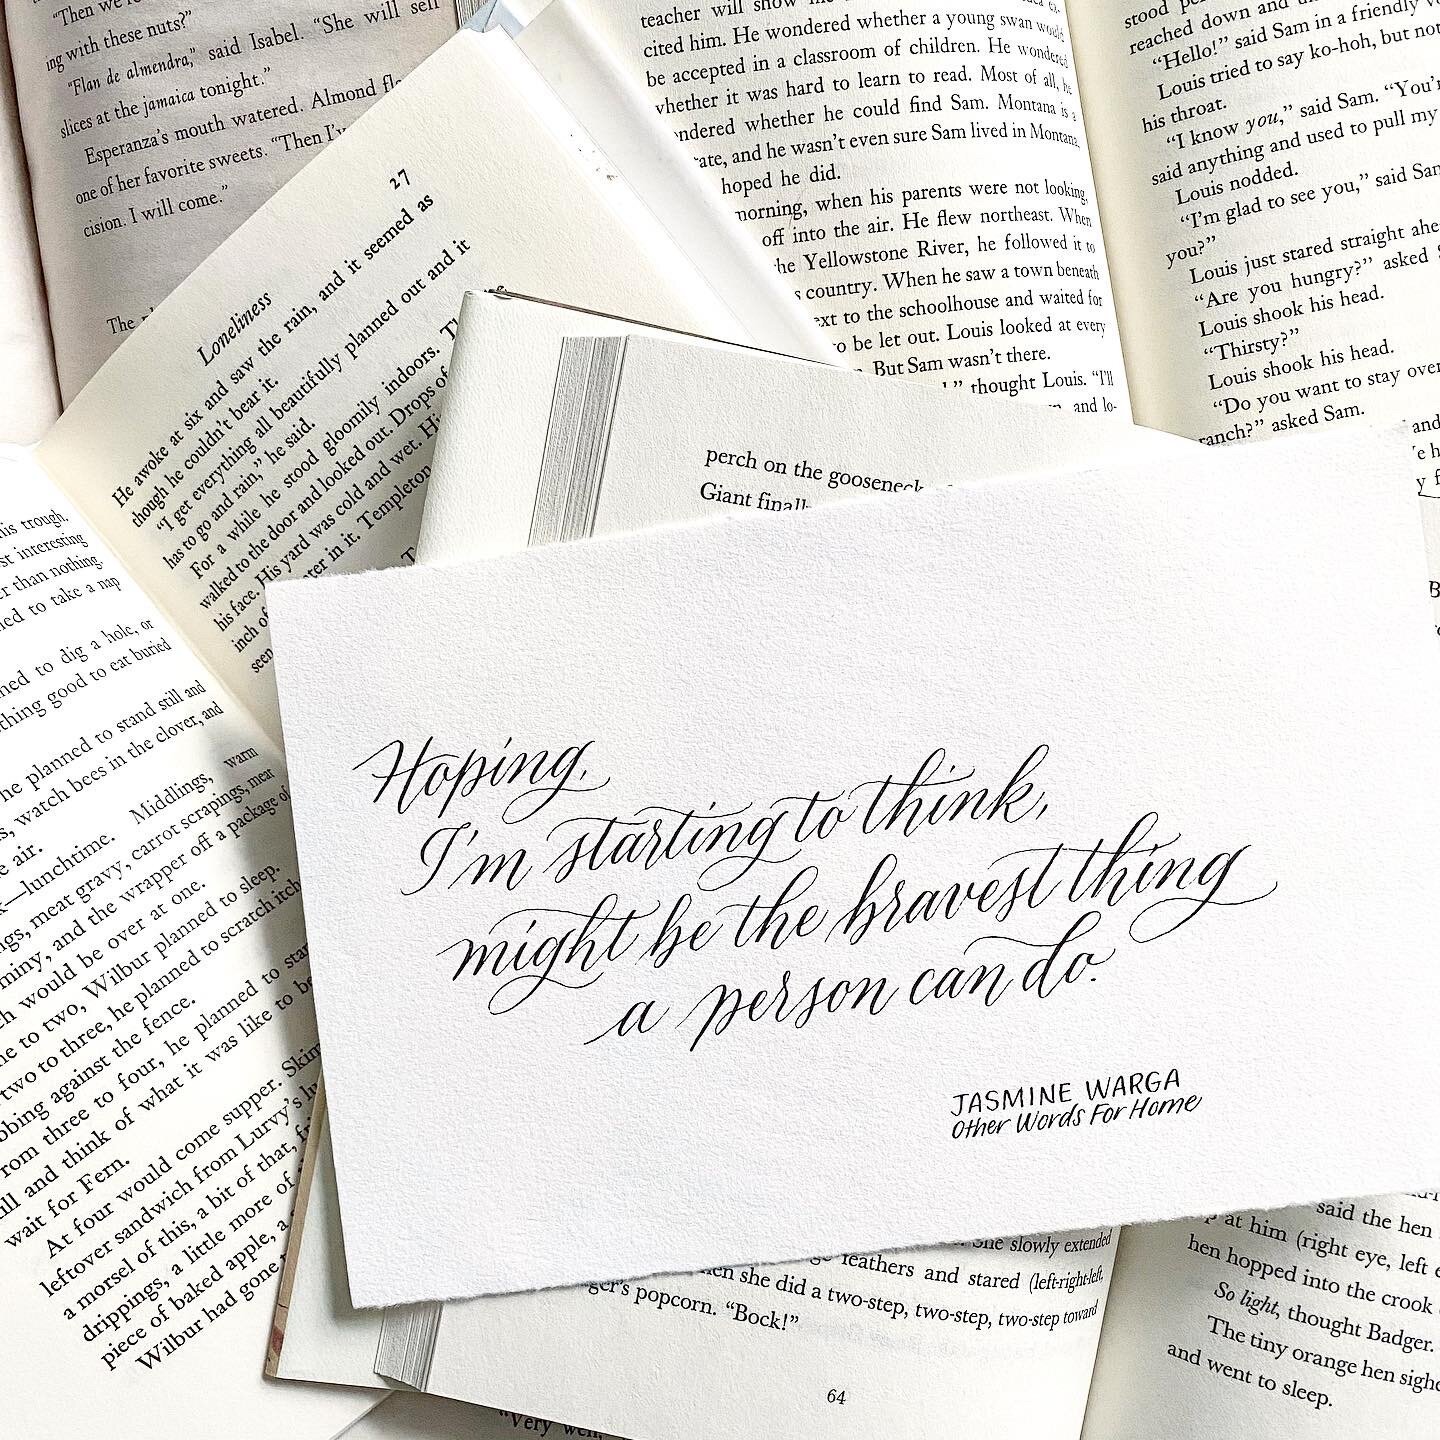 "Then we're
ing with these nuts?"
"Flan de almendra," said Isabel. "She will sell
slices at the jamaica tonight."
Esperanza's mouth watered. Almond
one of her favorite sweets. "Then
cision. I will come."
The
27
Loneliness
He awoke at six and saw the rain, and it seemed as
though he couldn't bear it.
"I get everything all beautifully planned out and it
has to go and rain," he said.
For a while he stood gloomily indoors.
walked to the door and looked out. Drops of
his face. His yard was cold and wet.
inch of in it. Templeton
seen
his trough,
interesting
than nothing.
to take a nap
to dig a hole, or
good to eat buried
he planned to stand still and
watch bees in the clover, and
air.
lunchtime. Middlings, warm
meat gravy, carrot scrapings, meat
and the wrapper off a package of
would be over at one.
to two, Wilbur planned to sleep.
two to three, he planned to scratch
against the fence.
three to four, he planned to
and think of what it was like to
wait for Fern.
At four would come supper.
leftover sandwich from Lurvy's
a morsel of this, a bit of that,
drippings, a little more of
piece of baked apple, a
Wilbur had gone
teacher will show
cited him. He wondered whether a young swan would
be accepted in a classroom of children. He wondered
whether it was hard to learn to read. Most of all, he
wondered whether he could find Sam. Montana is a
and he wasn't even sure Sam lived in Montana,
hoped he did.
morning, when his parents were not looking,
off into the air. He flew northeast. When
the Yellowstone River, he followed it to
country. When he saw a town beneath
to the schoolhouse and waited for
to be let out. Louis looked at every
But Sam wasn't there.
thought Louis. "I'll
and lo-
stood
reached down and
"Hello!" said Sam in a friendly
Louis tried to say ko-hoh, but
his throat.
"I know you," said Sam. "You're
said anything and used to pull my
Louis nodded.
"I'm glad to see you," said Sam
you?"
Louis just stared straight
"Are you hungry?" asked
Louis shook his head.
"Thirsty?"
Louis shook his head.
"Do you want to stay over
ranch?" asked Sam.
and
perch on the gooseneck
Giant finally
Hoping,
I'm starting to think,
might be the bravest thing
a person can do.
JASMINE WARGA
Other Words For Home
She slowly extended
feathers and stared (left-right-left,
she did a two-step, two-step, two-step toward
popcorn. "Bock!"
64
"Very well,
said the hen
at him (right eye, left
hen hopped into the crook
So light, thought Badger.
The tiny orange hen
and went to sleep.